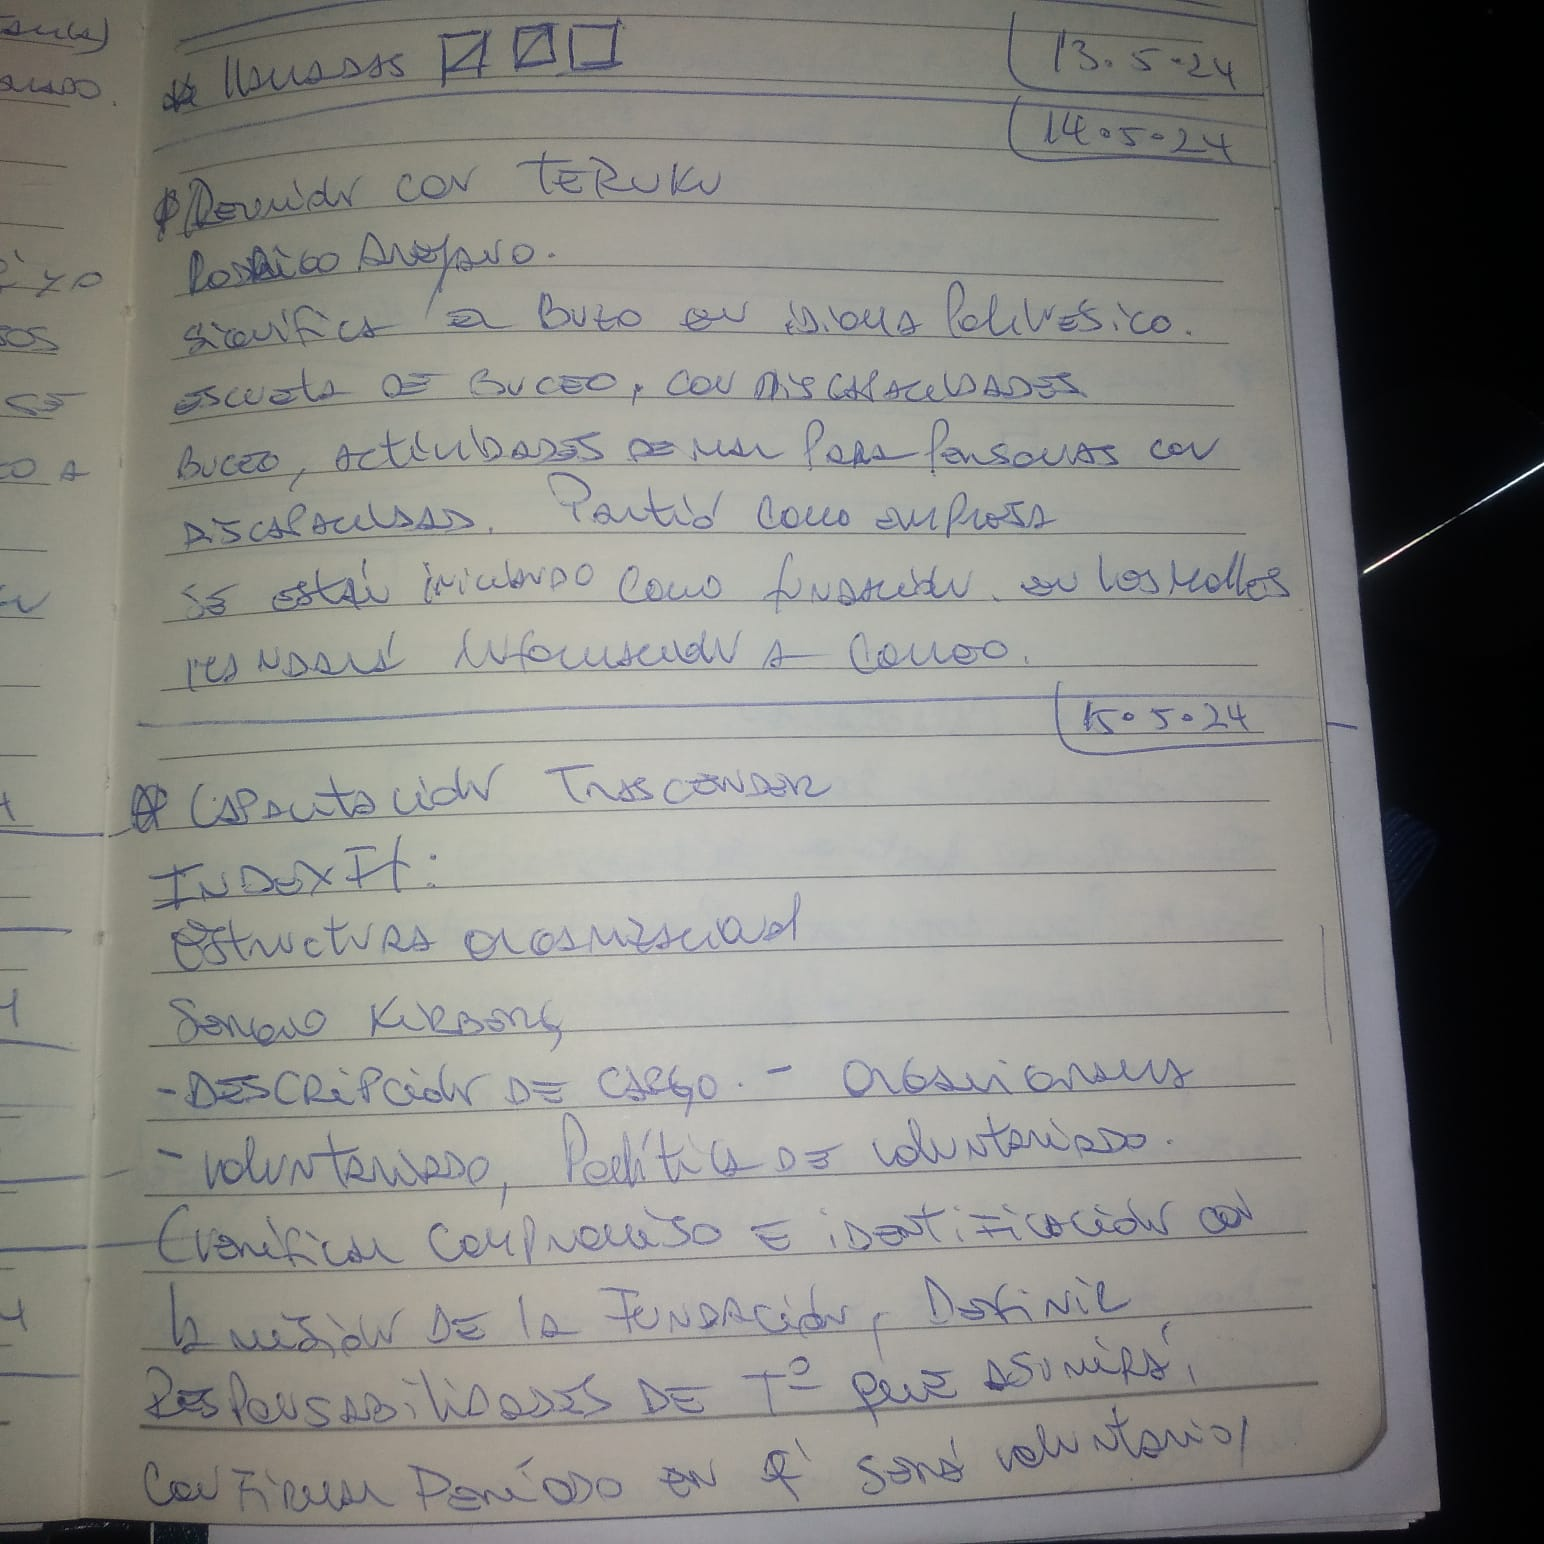 ando.
izo
sos
se
co a
* llamadas
13.5.24
14.5.24
* Reunión con TERUKU
Rodrigo Arejano.
significa a Buzo en idioma Polinésico.
escuela de Buceo, con discapacidades
Buceo, actividades de mar para personas con
discapacidad. Partió como empresa
se están iniciando como fundación. en los Molles
mandará información a correo.
15.5.24
* Capacitación Trascender
INDEX It:
Estructura organizacional
Sergio
- DESCRIPCIÓN DE CARGO. - organigrama
- voluntariado, Política de voluntariado.
(verificar compromiso e identificación con
la misión de la Fundación, Definir
Responsabilidades de Tº que asumirá,
confirmar Período en q' será voluntario/